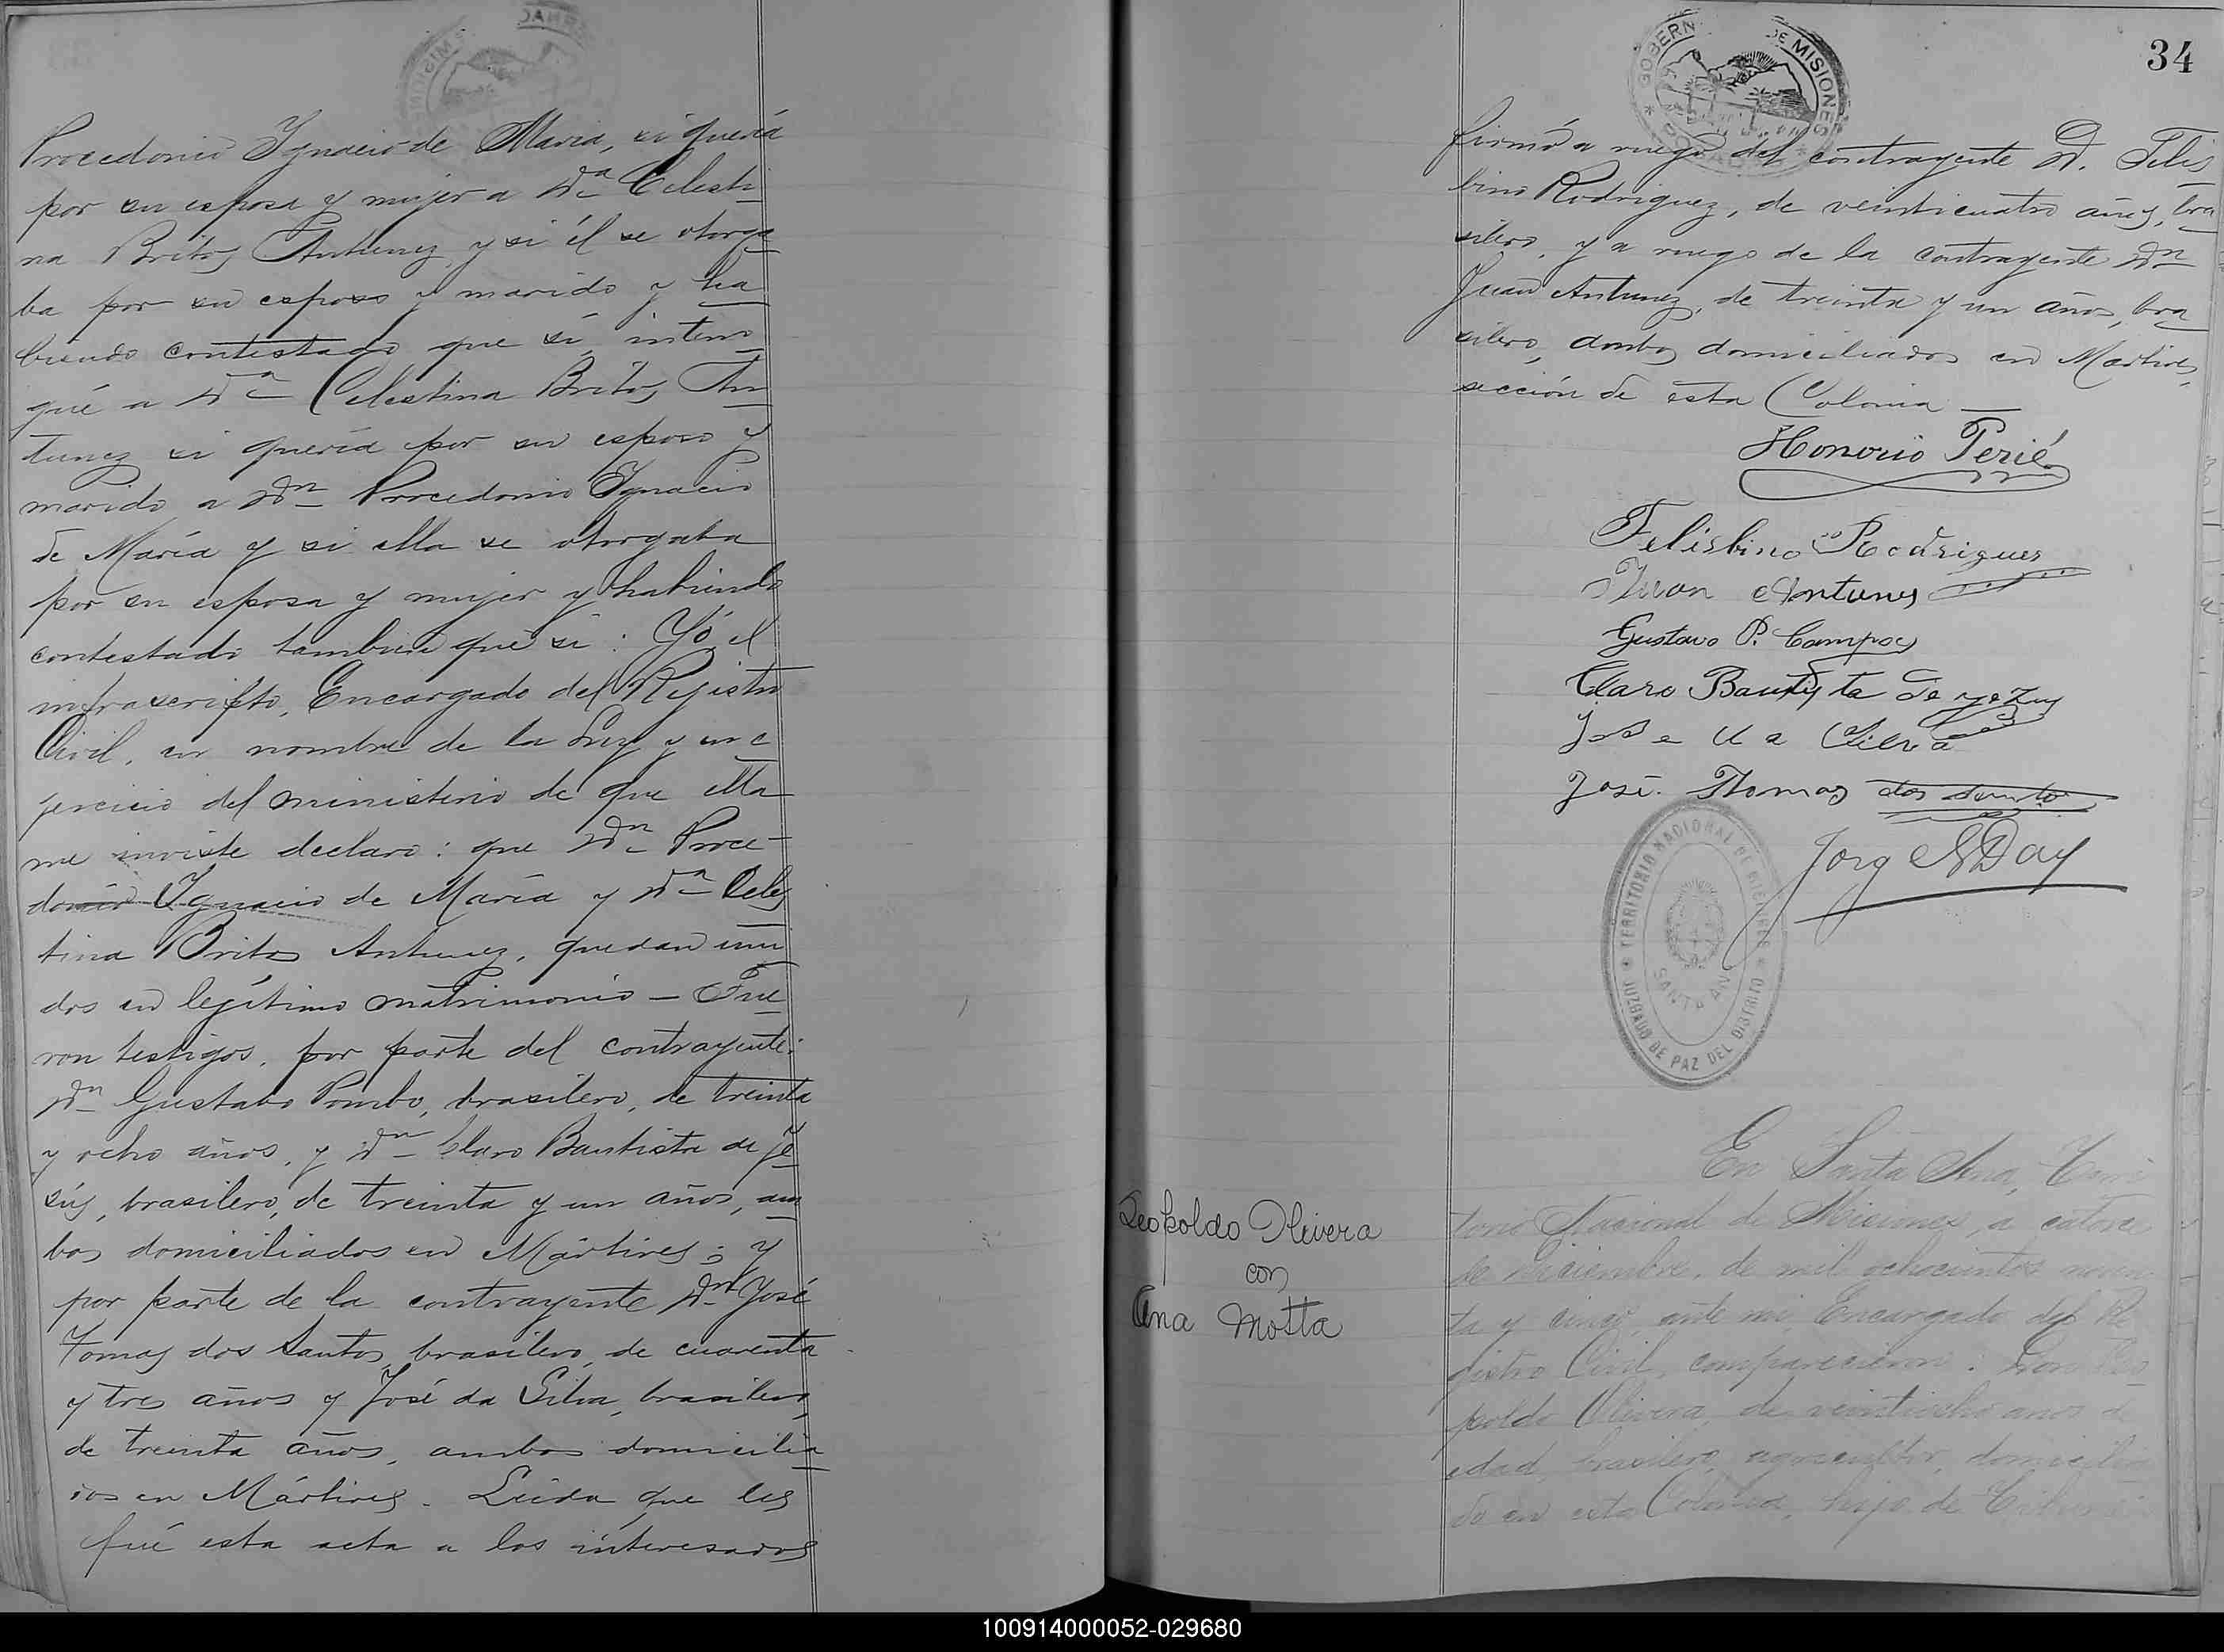 Procedonio Ignacio de Maria, si queria
por su esposa y mujer a Dª Celesti
na Britos Antunez y si él se otorga
ba por su esposo y marido y ha
biendo contestado que si, interro
gué a Dª Celestina Britos An
tunez si queria por su esposo y
marido a Dn Procedonio Ignacio
de María y si ella se otorgaba
por su esposa y mujer y habiendo
contestado tambien que si: Yó el
infrascripto, Encargado del Rejistro
Civil, en nombre de la Ley y en e
jercicio del ministerio de que ella
me inviste declaro: que Dn Proce-
donio Ignacio de María y Dª Celes
tina Britos Antunez, quedan uni
dos en legítimo matrimonio - Fue
ron testigos, por parte del contrayente:
Dn Gustabo Pombo, brasilero, de treinta
y ocho años, y Dn Claro Bautista de Je
sús, brasilero, de treinta y un años, am
bos domiciliados en Mártires; y
por parte de la contrayente Dn José
Tomas dos Santos, brasilero, de cuarenta
y tres años y José da Silva, brasilero,
de treinta años, ambos domicilia
dos en Mártires. Leida que les
fué esta acta a los interesados
GOBERN DE MISIONES
34
firmó a ruego del contrayente D. Felis
bino Rodriguez, de veinticuatro años, bra
silero, y a ruego de la contrayente Dn
Juan Antunez, de treinta y un años, bra
silero, ambos domiciliados en Martires,
sección de esta Colonia
Honorio Perié
Felisbino Rodrigues
Juan Antunes
Gustavo P. Campos
Claro Bautista de
José da Silva
José Thomas dos Santos
Jorg Day
TERRITORIO NACIONAL DE MISIONES
SANTA ANA
JUZGADO DE PAZ DEL DISTRITO
Leopoldo Olivera
con
Ana Motta
En Santa Ana, Terri
torio Nacional de Misiones, a catorce
de Diciembre, de mil ochocientos noven
ta y cinco, ante mi, Encargado del Re
gistro Civil, comparecieron: Don Leo
poldo Olivera, de veintiocho años de
edad, brasilero, agricultor, domicilia
do en esta Colonia, hijo de
100914000052-029680